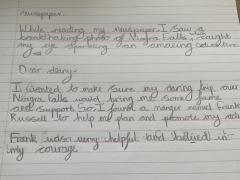 newspaper.
While reading my newspaper. I saw a
breathtaking photo of Niagra Falls, caught
my eye sparking an amazing adventure.
Dear diary-
I wanted to make sure my daring trip over
Niagra falls would bring me some fame
and support So, I found a manger named Frank
Russell to help me plan and promote my act
Frank was very helpful and believed in
my courage